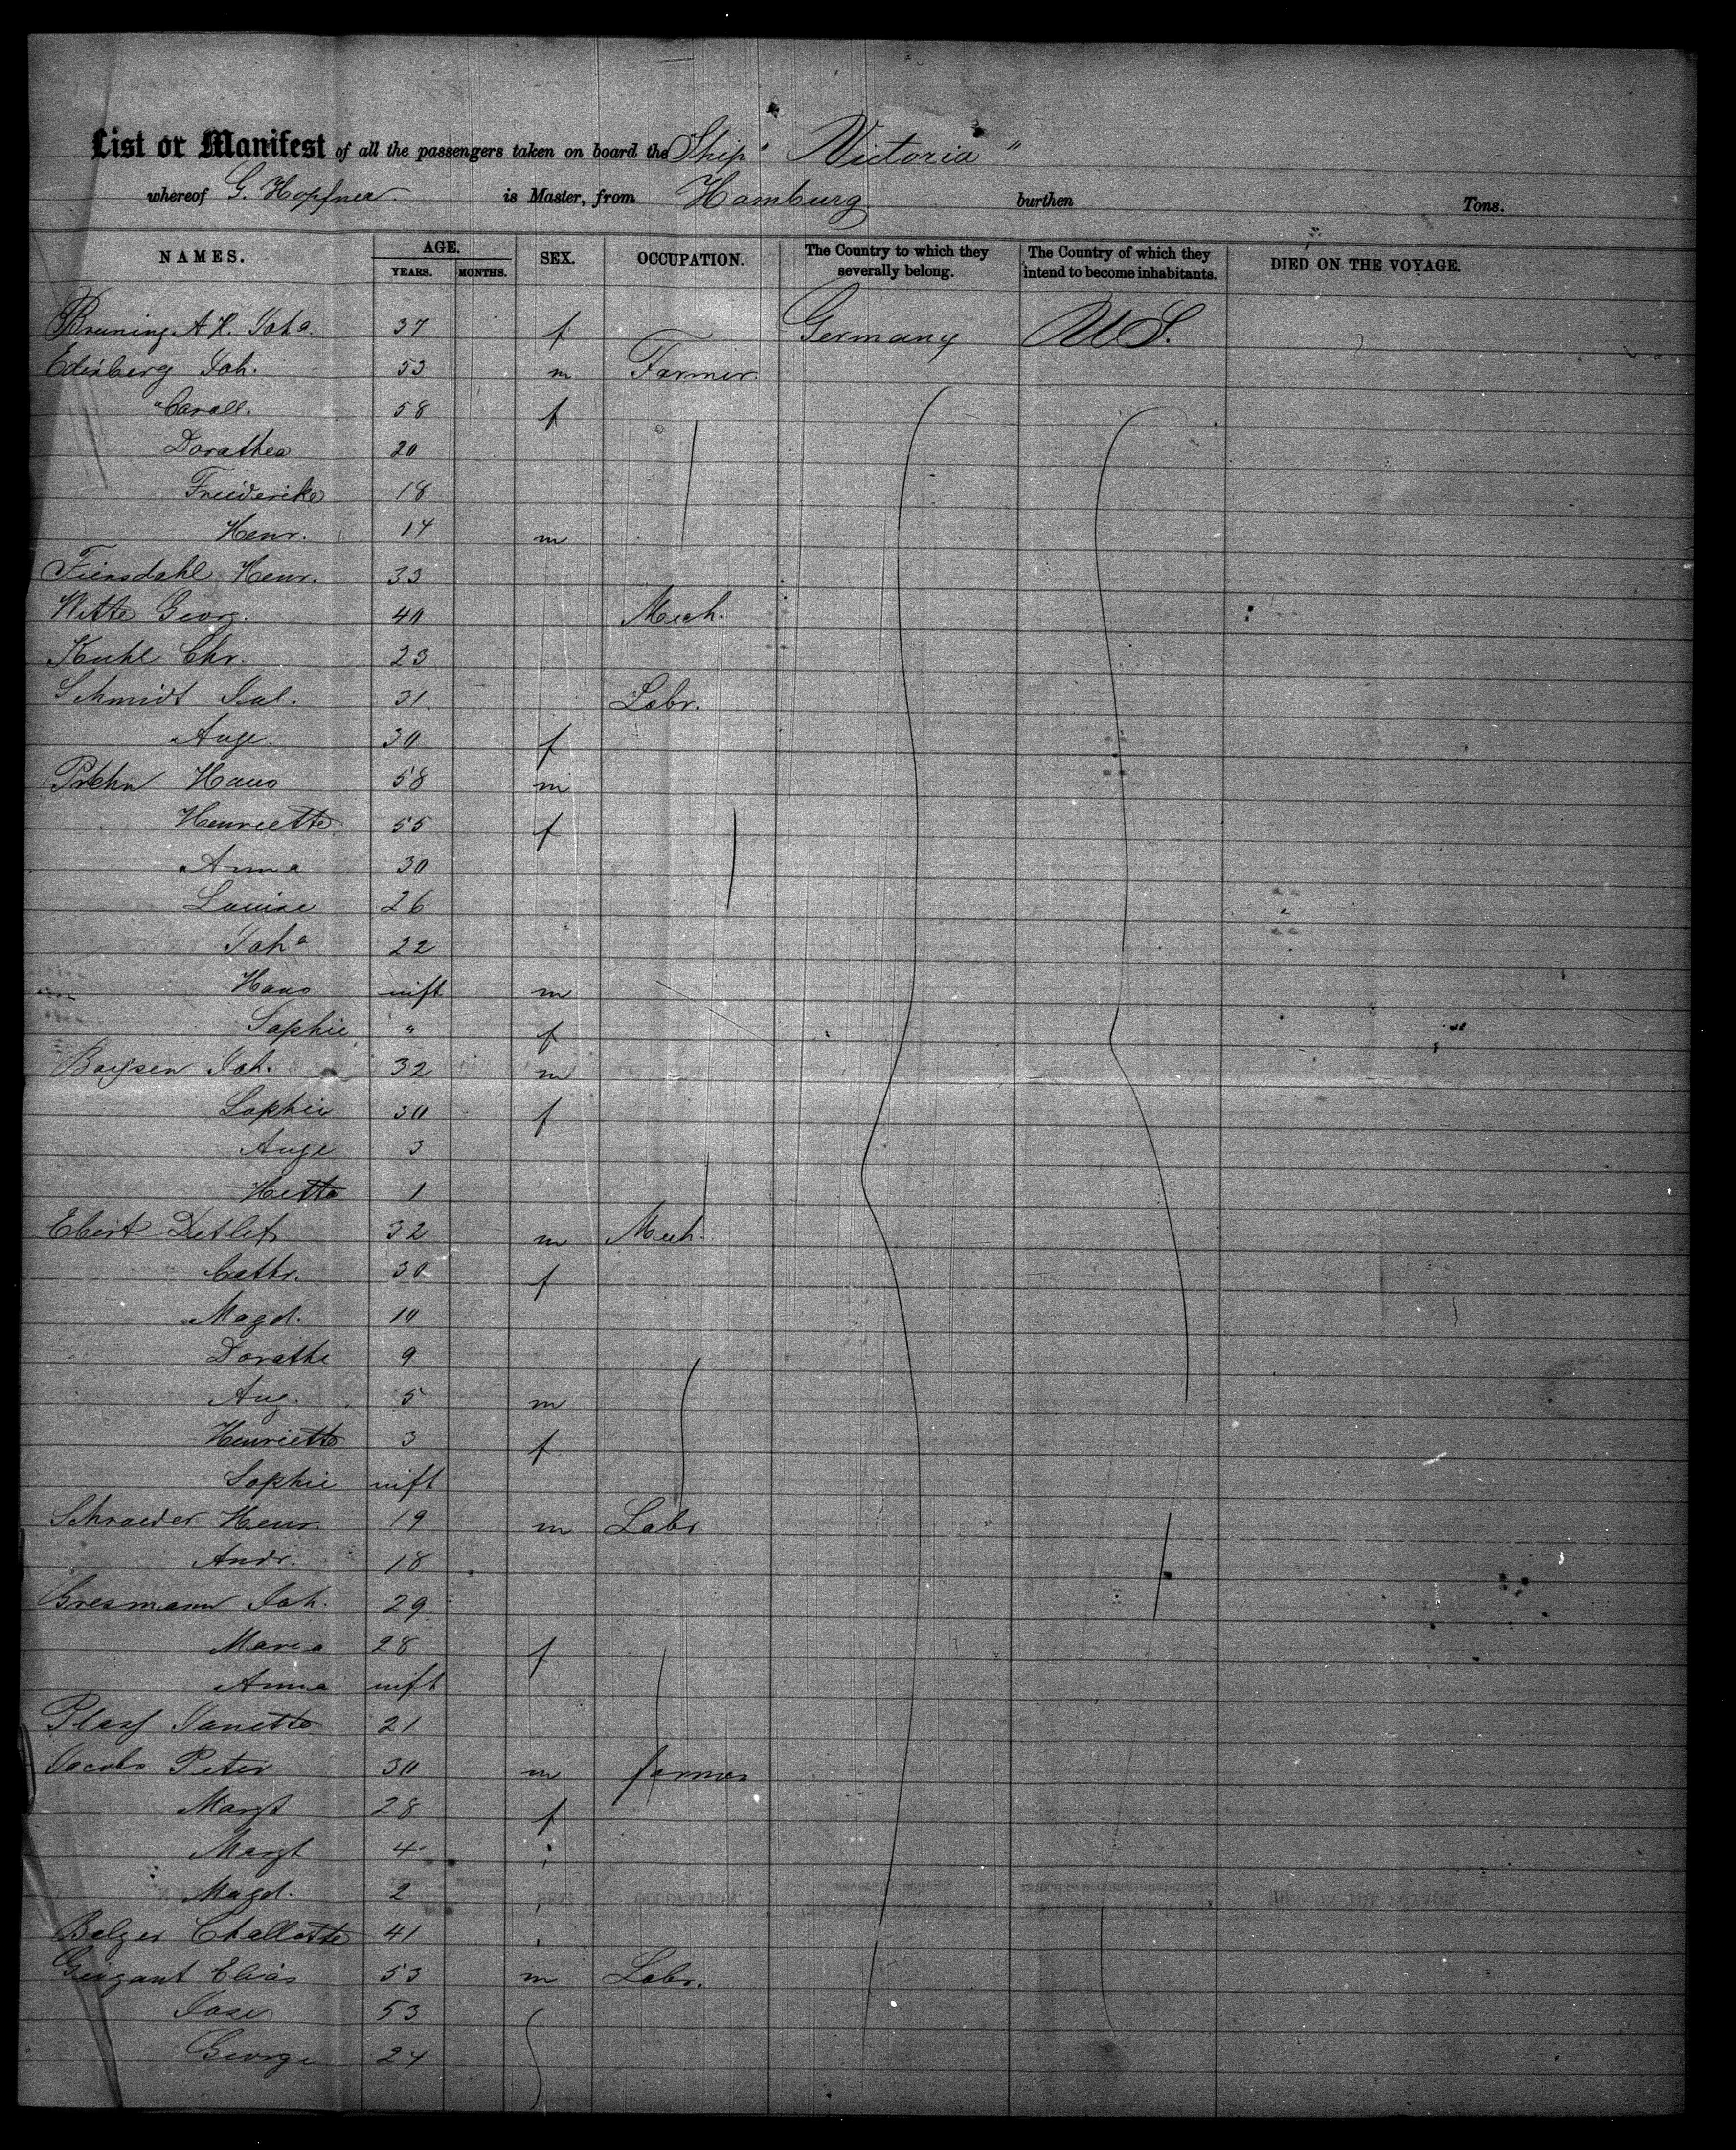 List or Manifest of all the passengers taken on board the Ship "Victoria"
whereof G. Hopfner is Master, from Hamburg burthen Tons.
NAMES. AGE. YEARS. MONTHS. SEX. OCCUPATION. The Country to which they severally belong. The Country of which they intend to become inhabitants. DIED ON THE VOYAGE.
Bruning A. Joha. 37 f Germany U S.
Edinberg Joh. 53 m Farmer.
" 58 f
Dorathea 20
Friederike 18
Henr. 14 m
Henr. 33
Witte Georg. 40 Mech.
Kuhl Chr. 23
Schmidt Jul. 31 Labr.
Auge 30 f
Prehn Hans 58 m
Henriette 55 f
Anna 30
Louise 26
Joha 22
Hans inft m
Sophie " f
Boysen Joh. 32 m
Sophie 30 f
Auge 3
1
Ebert Detlef 32 m Mech.
Cathr. 30 f
Magd. 10
Dorathe 9
Aug. 5 m
Henriette 3 f
Sophie inft
Schroeder Henr. 19 m Labr
Andr. 18
Gresmann Joh. 29
Maria 28 f
Anna inft
Janette 21
Jacobs Peter 30 m farmer
Margt 28 f
Margt 4
Magd. 2
Challotte 41
Elias 53 m Labr.
53
George 24